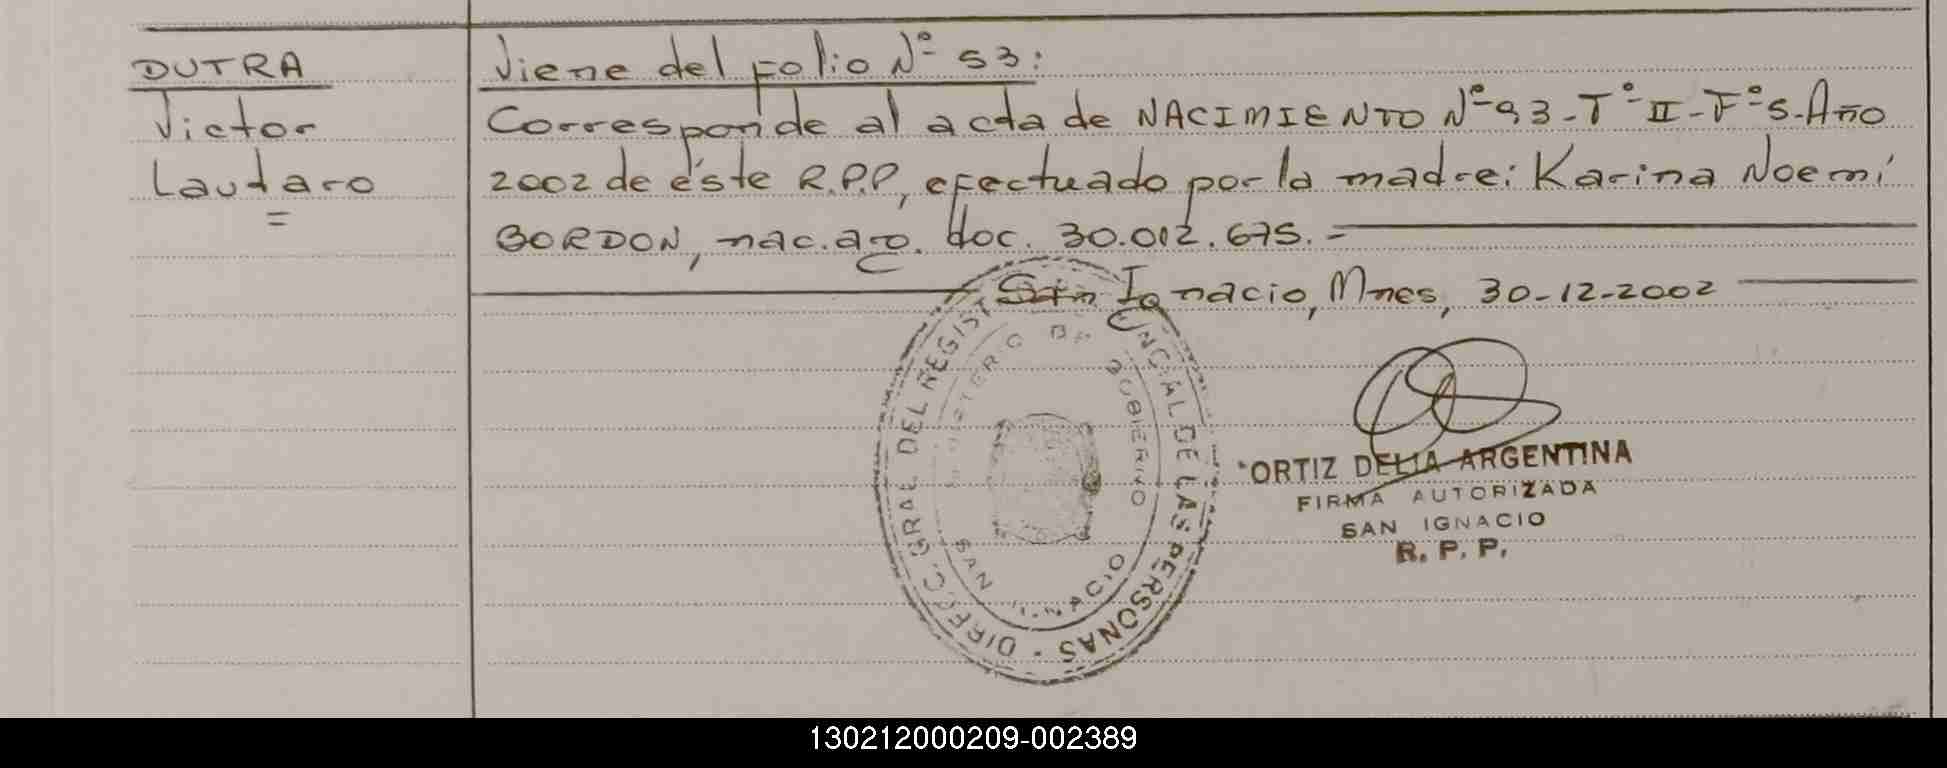 DUTRA
Victor
Lautaro
=
Viene del folio Nº 53:
Corresponde al acta de NACIMIENTO Nº 93-Tº II-Fº 5-Año
2002 de éste R.P.P, efectuado por la madre: Karina Noemí
BORDON, nac. arg. doc. 30.012.675.=
San Ignacio, Mnes, 30-12-2002
DIRECC. GRAL DEL REGIST NCIAL DE LAS PERSONAS -
MINISTERIO DE GOBIERNO
SAN IGNACIO
ORTIZ DELIA ARGENTINA
FIRMA AUTORIZADA
SAN IGNACIO
R. P. P.
130212000209-002389